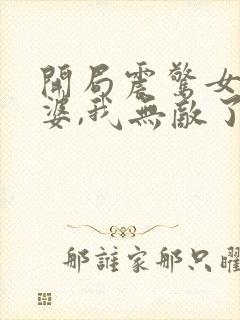 開局震驚女
婆,我無敵了
那誰家那只曜